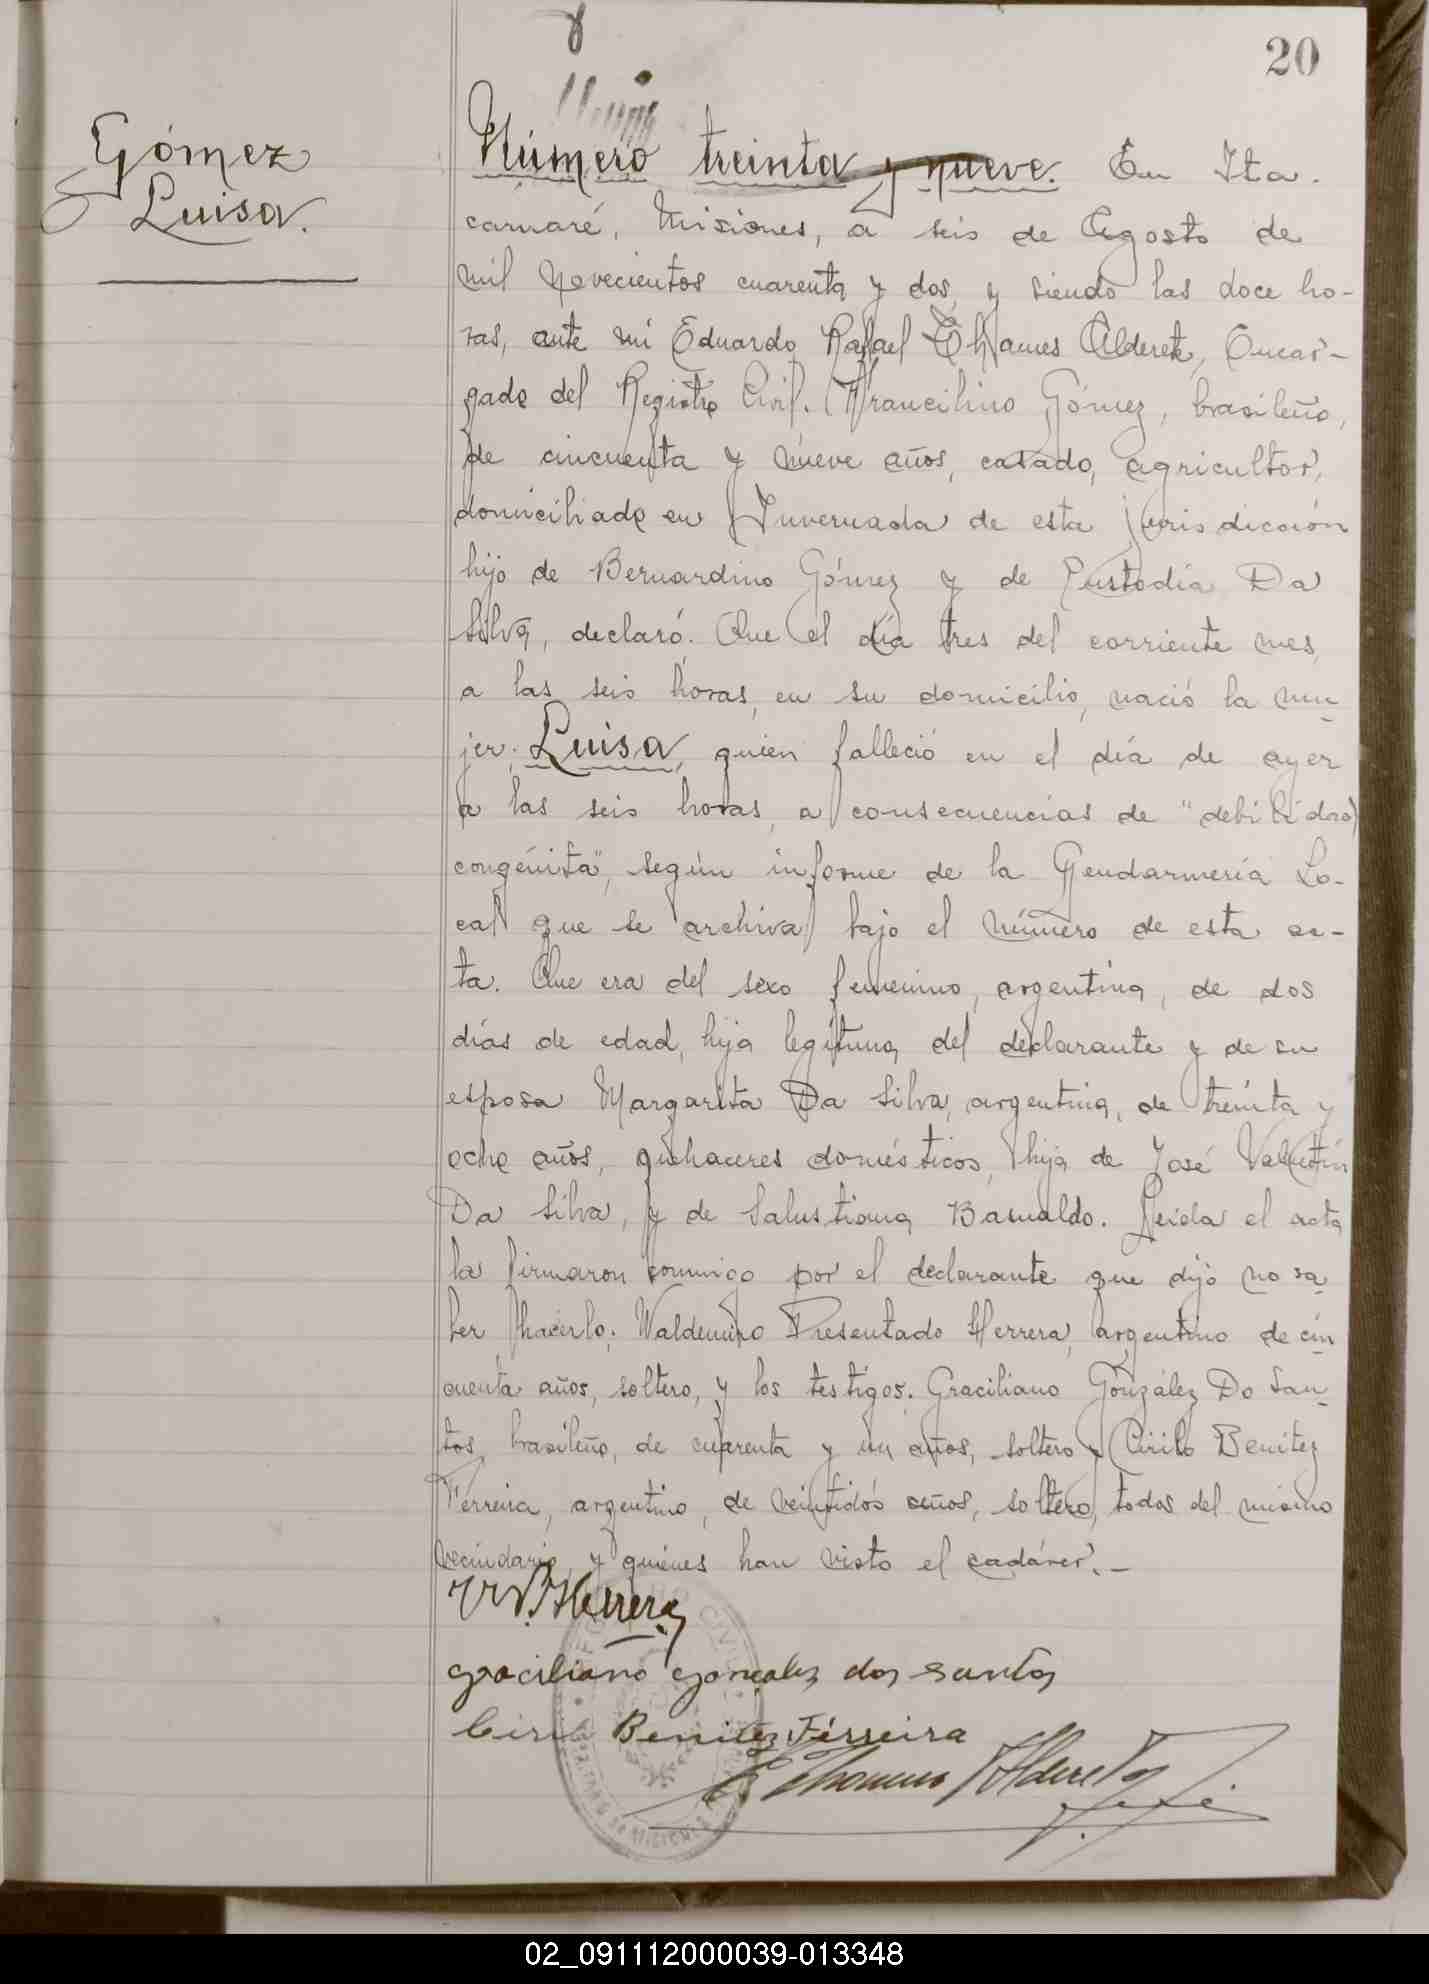 20
Gómez
Luisa.
Número treinta y nueve. En Ita-
caruaré, Misiones, a seis de Agosto de
mil novecientos cuarenta y dos, y siendo las doce ho-
ras, ante mi Eduardo Rafael Thames Alderete, Encar-
gado del Registro Civil. Francilino Gómez, brasileño,
de cincuenta y nueve años, casado, agricultor,
domiciliado en Invernada de esta jurisdicción
hijo de Bernardino Gómez y de Custodia Da
Silva, declaró. Que el día tres del corriente mes,
a las seis horas, en su domicilio, nació la mu-
jer, Luisa, quien falleció en el día de ayer
a las seis horas, a consecuencias de "debilidad
congénita", según informe de la Gendarmería Lo-
cal que se archiva bajo el número de esta ac-
ta. Que era del sexo femenino, argentina, de dos
días de edad, hija legítima del declarante y de su
esposa Margarita Da Silva, argentina, de treinta y
ocho años, quehaceres domésticos, hija de José Valentín
Da Silva, y de Salustiana Basualdo. Leída el acta
la firmaron conmigo por el declarante que dijo no sa
ber hacerlo. Waldemiro Presentado Herrera, argentino de cin
cuenta años, soltero, y los testigos. Graciliano González Do San-
tos, brasileño, de cuarenta y un años, soltero y Cirilo Benítez
Ferreira, argentino, de veintidós años, soltero, todos del mismo
vecindario y quienes han visto el cadáver.-
W P. Herrera
graciliano gonçalez dos santos
Cirilo Benitez Ferreira
E Thames Alderete
Jefe
02_091112000039-013348